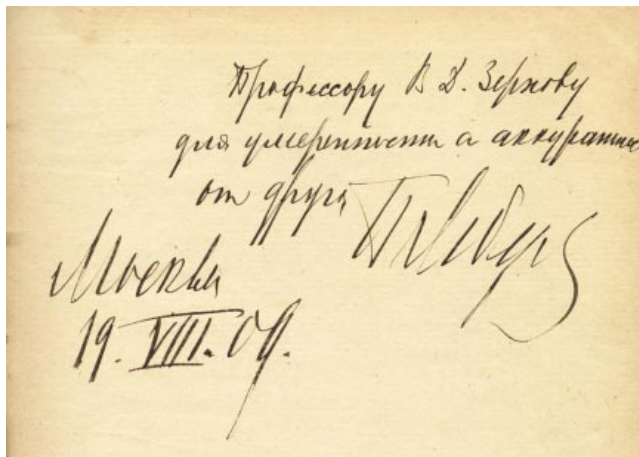 Профессору В Д. Зернову
для умеренности и аккуратнос
от друга П Лебед
Москва
19. VIII. 09.